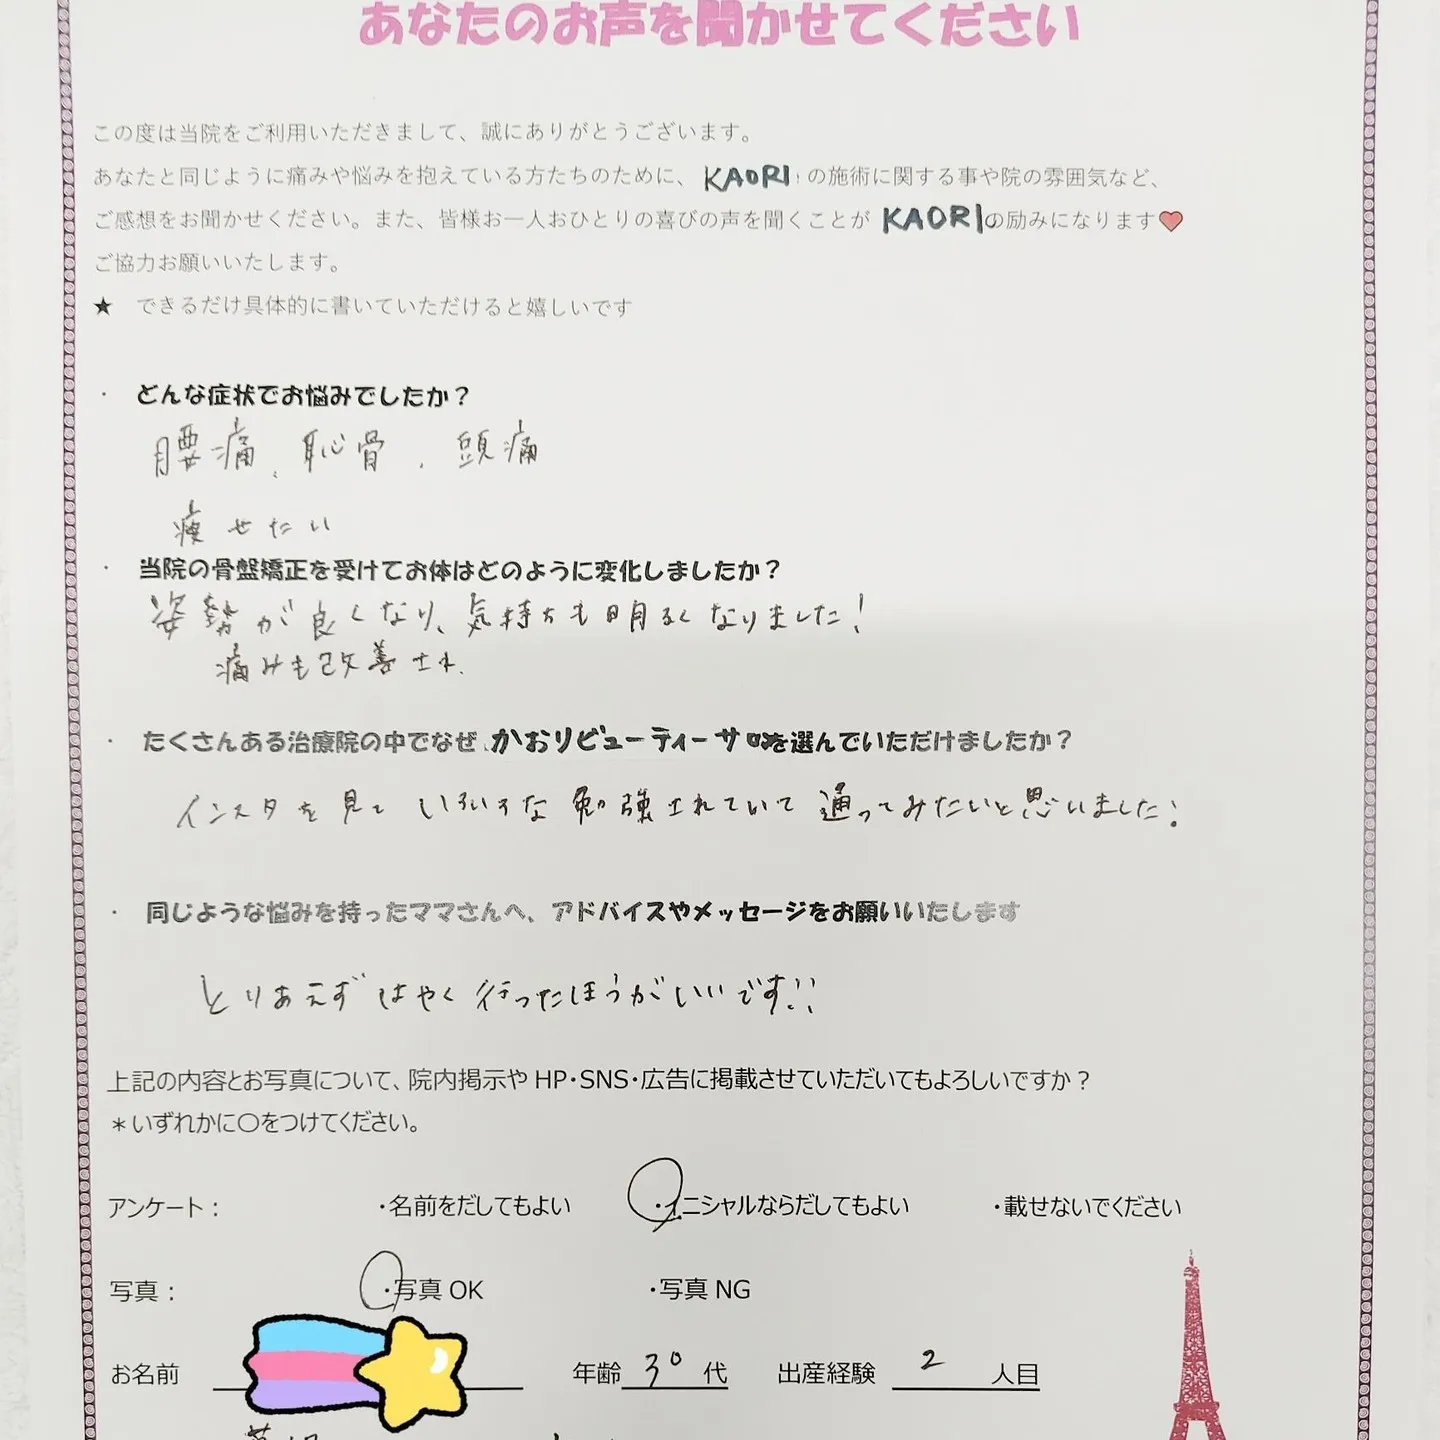 あなたのお声を聞かせてください
この度は当院をご利用いただきまして、誠にありがとうございます。
あなたと同じように痛みや悩みを抱えている方たちのために、 KAORI の施術に関する事や院の雰囲気など、
ご感想をお聞かせください。また、皆様お一人おひとりの喜びの声を聞くことが KAORIの励みになります❤
ご協力お願いいたします。
★ できるだけ具体的に書いていただけると嬉しいです
・ どんな症状でお悩みでしたか？
腰痛、恥骨、頭痛
痩せたい
・ 当院の骨盤矯正を受けてお体はどのように変化しましたか？
姿勢が良くなり、気持ちも明るくなりました！
痛みも改善され、
・ たくさんある治療院の中でなぜ かおりビューティーサロンを選んでいただけましたか？
インスタを見て いろいろな 勉強されていて 通ってみたいと思いました！
・ 同じような悩みを持ったママさんへ、アドバイスやメッセージをお願いいたします
とりあえず はやく 行ったほうがいいです！！
上記の内容とお写真について、院内掲示や HP・SNS・広告に掲載させていただいてもよろしいですか？
＊いずれかに〇をつけてください。
アンケート： ・名前をだしてもよい ・イニシャルならだしてもよい ・載せないでください
写真： ・写真 OK ・写真 NG
お名前 年齢 30 代 出産経験 2 人目